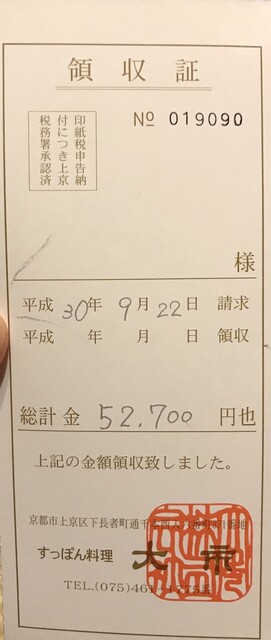 領収証
№ 019090
印紙税申告納
付につき上京
税務署承認済
様
平成 30年 9月 22日 請求
平成 年 月 日 領収
総計金 52,700 円也
上記の金額領収致しました。
京都市上京区下長者町通千
すっぽん料理 大市
TEL.(075)461-1775番